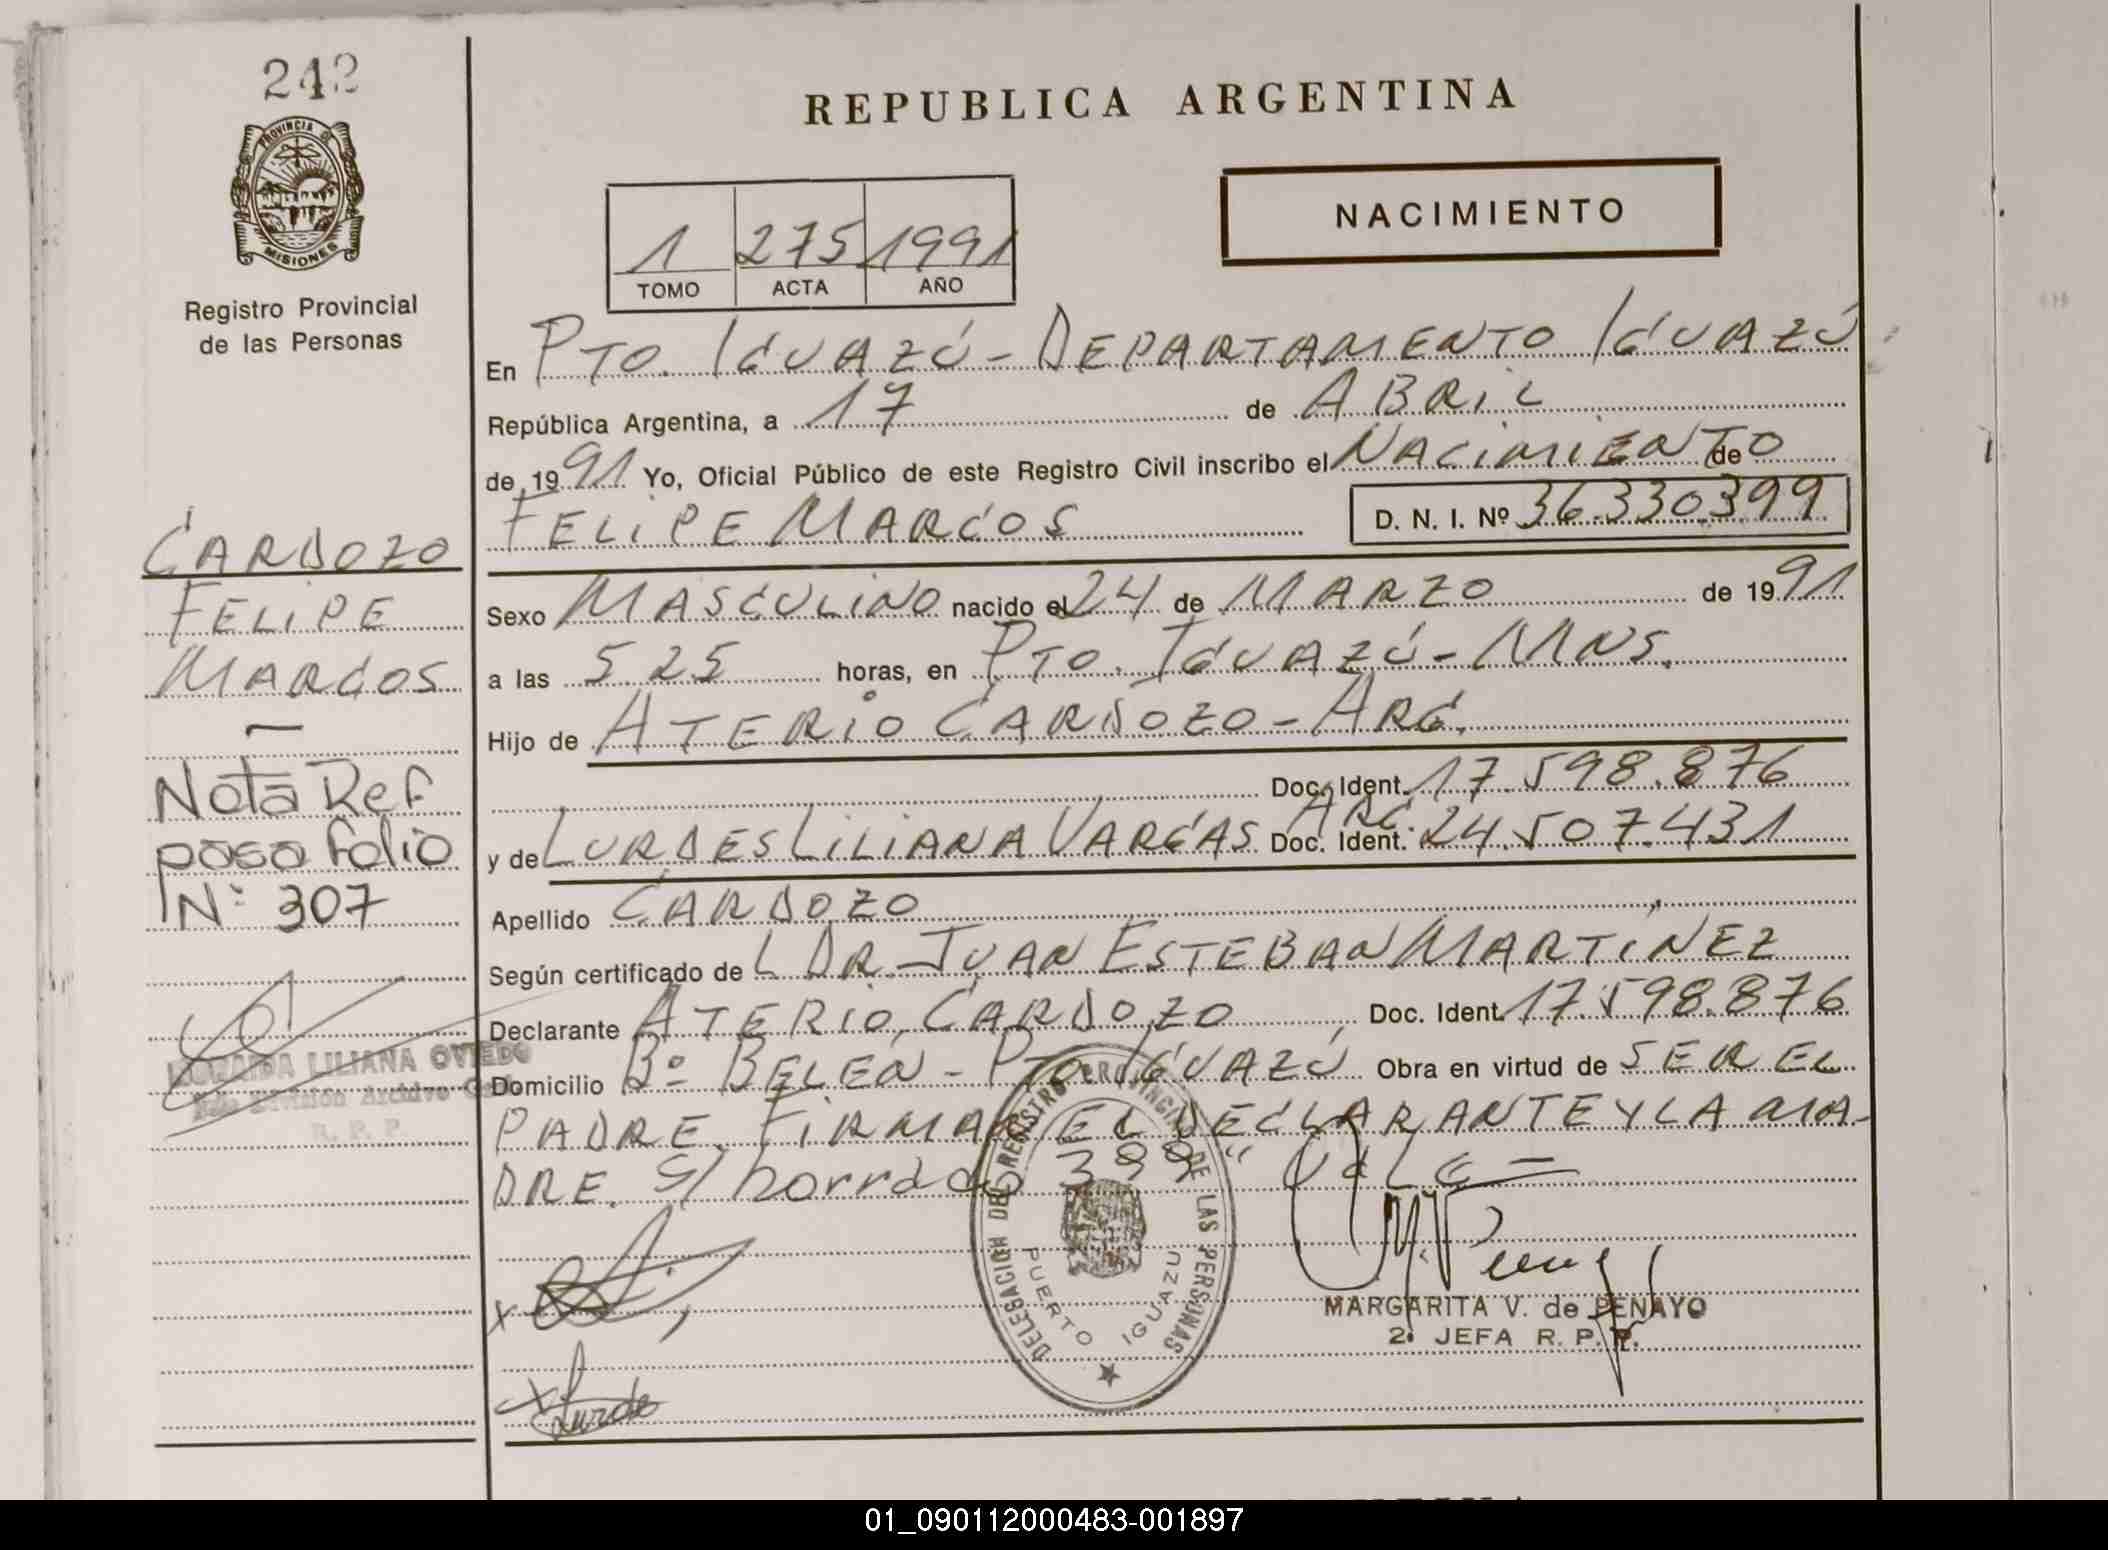 242
PROVINCIA DE
MISIONES
Registro Provincial
de las Personas
REPUBLICA ARGENTINA
1 275 1991
TOMO ACTA AÑO
NACIMIENTO
En PTO. IGUAZÚ - DEPARTAMENTO IGUAZÚ
República Argentina, a 17 de ABRIL
de 1991 Yo, Oficial Público de este Registro Civil inscribo el NACIMIENTO de
FELIPE MARCOS D. N. I. Nº 36.330.399
CARDOZO
FELIPE
MARCOS
—
Nota Ref
pasa folio
N: 307
LILIANA OVIEDO
División Archivo
R. P. P.
Sexo MASCULINO nacido el 24 de MARZO de 1991
a las 5 25 horas, en PTO. IGUAZÚ - MNS.
Hijo de ATERIO CARDOZO - ARG.
Doc. Ident. 17.598.876
y de LURDES LILIANA VARGAS ARG. Doc. Ident. 24.507.431
Apellido CARDOZO
Según certificado de L DR. JUAN ESTEBAN MARTÍNEZ
Declarante ATERIO CARDOZO Doc. Ident. 17.598.876
Domicilio Bº BELÉN - PTO IGUAZÚ Obra en virtud de SER EL
PADRE. FIRMAN EL DECLARANTE Y LA MA-
DRE. S/ borrado 399" Vale =
DELEGACION DEL REGISTRO PROVINCIAL DE LAS PERSONAS
PUERTO IGUAZU
MARGARITA V. de PENAYO
2ª JEFA R. P. P.
x
x Lurde
01_090112000483-001897